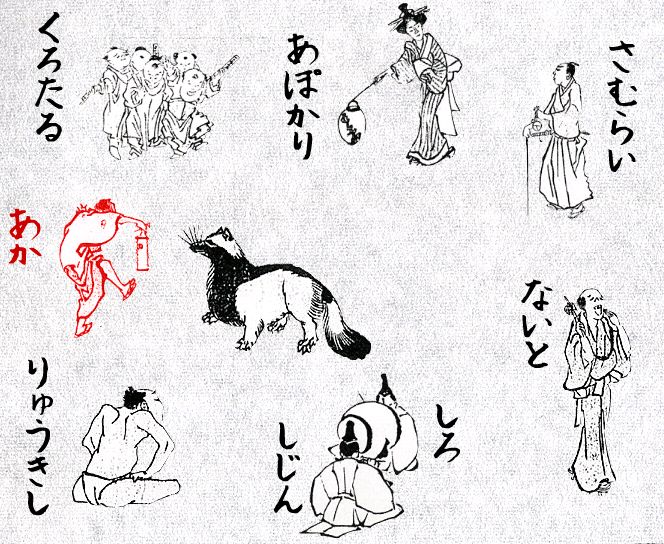 くろたる
あぽかり
さむらい
あか
ないと
りゅうきし
しろ
しじん